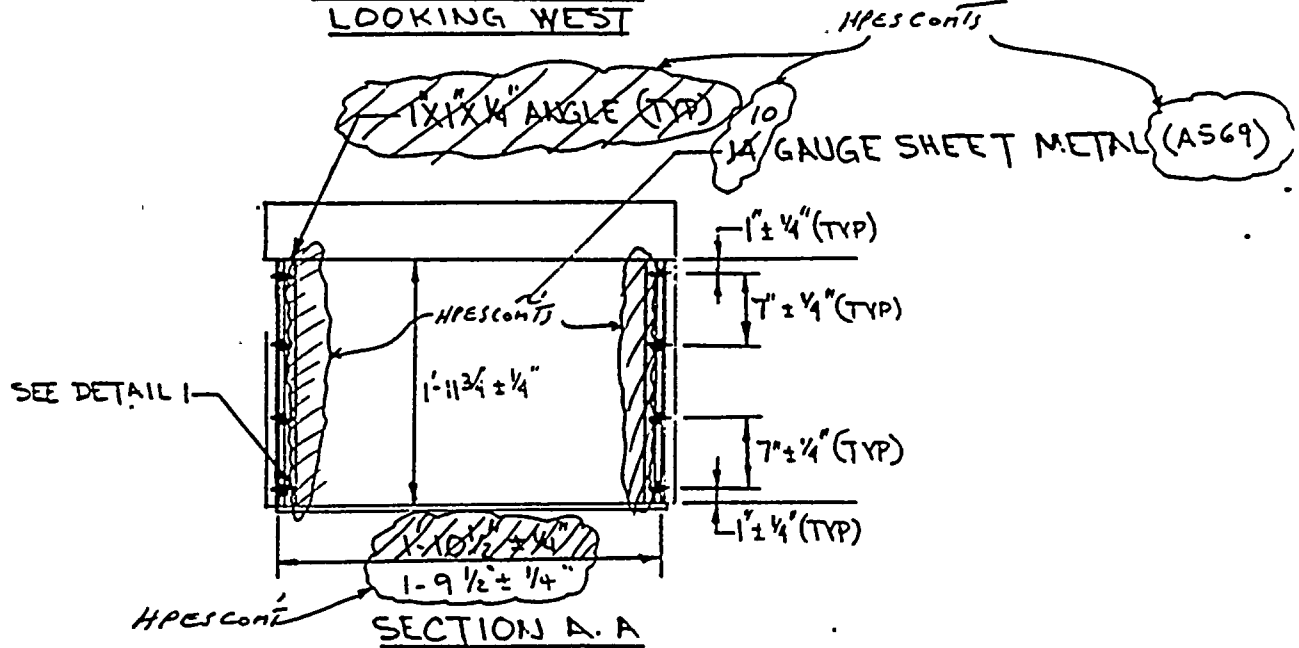 LOOKING WEST
HPES COMTS
1"X1"X1/4" ANGLE (TYP)
10
14 GAUGE SHEET METAL (A569)
1" ± 1/4" (TYP)
7" ± 1/4" (TYP)
HPES COMTS
1'-11 3/4 ± 1/4"
SEE DETAIL 1
7" ± 1/4" (TYP)
1" ± 1/4" (TYP)
1'-10 1/2" ± 1/4"
1-9 1/2" ± 1/4"
HPES COMT
SECTION A.A